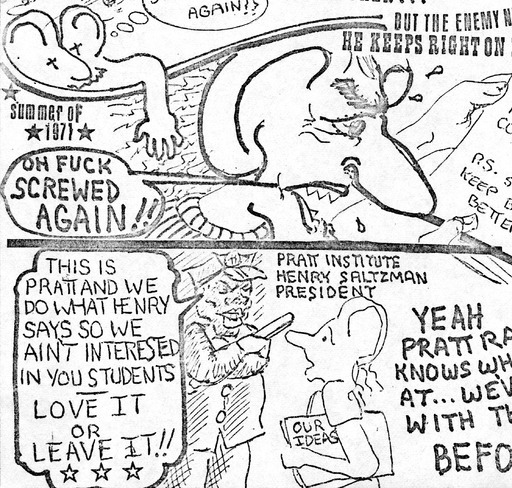 AGAIN!!
BUT THE ENEMY
HE KEEPS RIGHT ON
SUMMER OF
1971
OH FUCK
SCREWED
AGAIN!!
P.S.
KEEP
BETTE
THIS IS
PRATT AND WE
DO WHAT HENRY
SAYS SO WE
AIN'T INTERESTED
IN YOU STUDENTS
LOVE IT
OR
LEAVE IT!!
PRATT INSTITUTE
HENRY SALTZMAN
PRESIDENT
OUR
IDEAS
YEAH
PRATT RA
KNOWS WH
AT... WE'V
WITH TH
BEFO